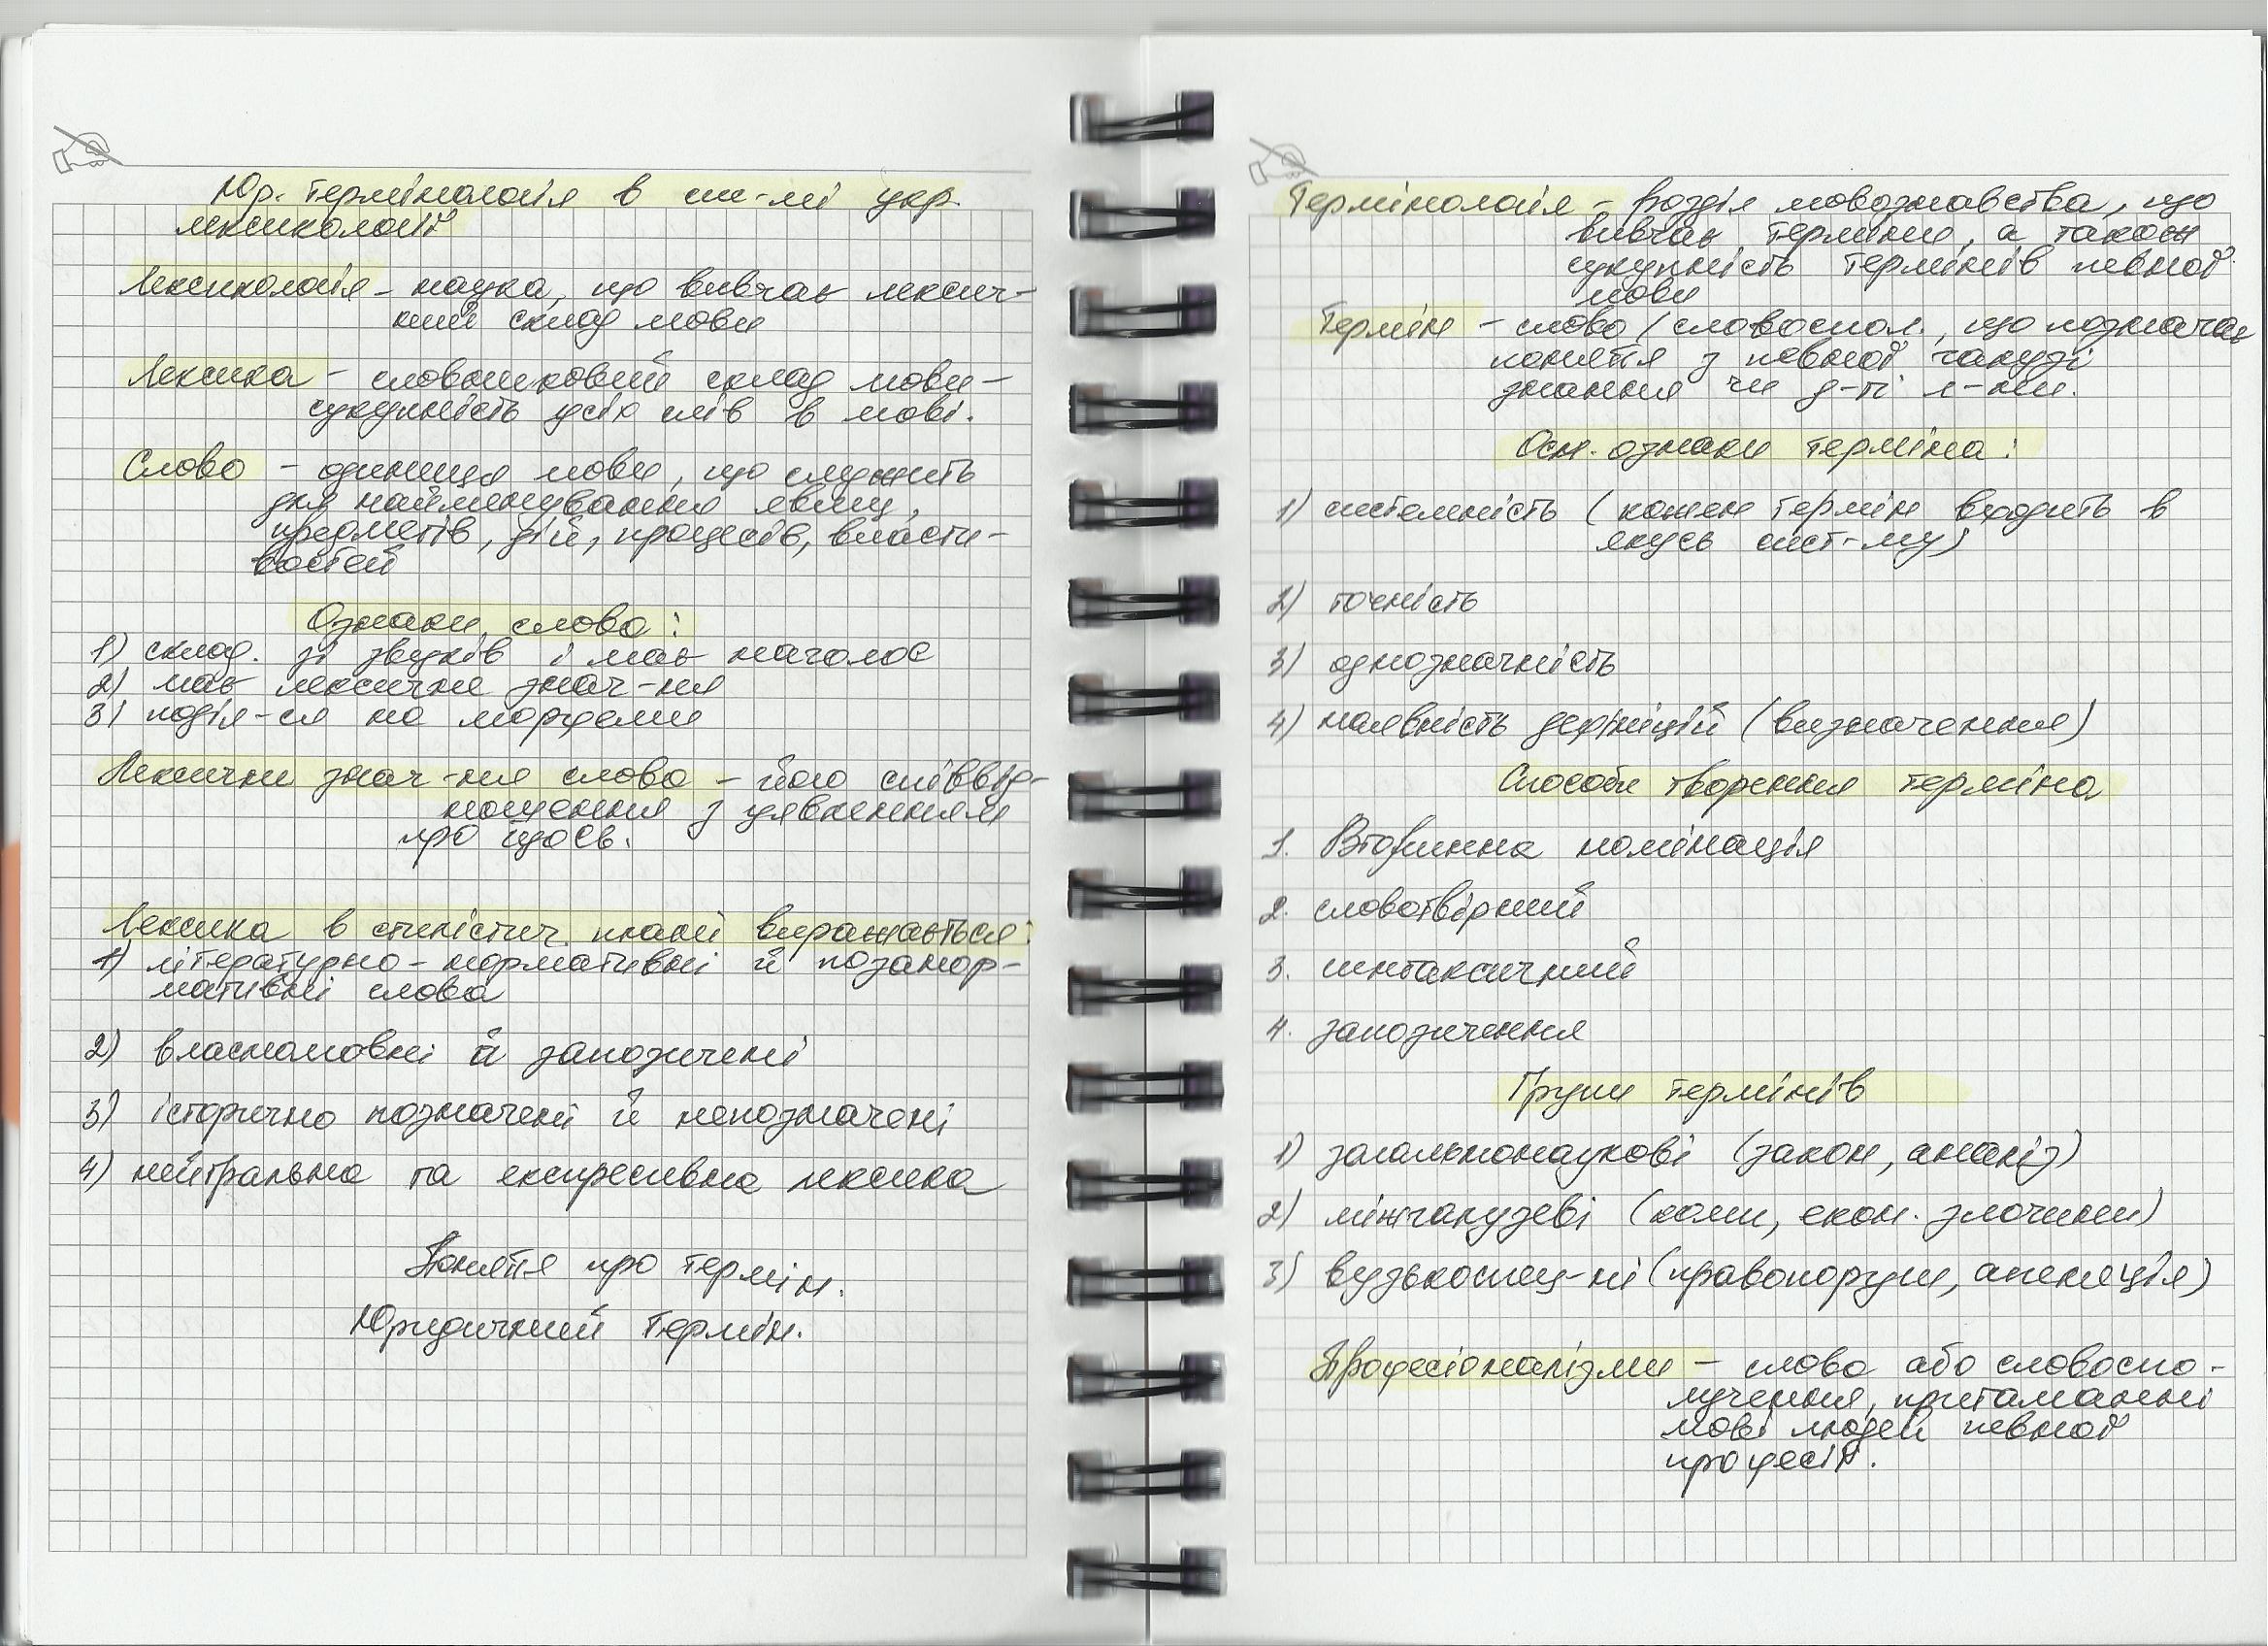 Юр. термінологія в сис-мі укр.
лексикології
Лексикологія - наука, що вивчає лексич-
ний склад мови
Лексика - словниковий склад мови -
сукупність усіх слів в мові.
Слово - одиниця мови, що служить
для найменування явищ,
предметів, дій, процесів, власти-
востей
Ознаки слова:
1) склад. зі звуків і має наголос
2) має лексичне знач-ня
3) поділ-ся на морфеми
Лексичне знач-ня слова - його співвід-
ношення з уявленням
про щось.
Лексика в стилістич. плані виражається:
1) літературно-нормативні й позанор-
мативні слова
2) власномовні й запозичені
3) історично позначені й непозначені
4) нейтральна та експресивна лексика
Поняття про термін.
Юридичний термін.
Термінологія - розділ мовознавства, що
вивчає терміни, а також
сукупність термінів певної
мови
Термін - слово/словоспол., що позначає
поняття з певної галузі
знання чи д-ті л-ни.
Осн. ознаки терміна:
1) системність (кожен термін входить в
якусь сист-му)
2) точність
3) однозначність
4) наявність дефініцій (визначення)
Способи творення терміна
1. Вторинна номінація
2. словотвірний
3. синтаксичний
4. запозичення
Групи термінів
1) загальнонаукові (закон, аналіз)
2) міжгалузеві (екон. злочини)
3) вузькоспец-ні (правопоруш, апеляція)
Професіоналізми - слова або словоспо-
лучення, притаманні
мові людей певної
професії.